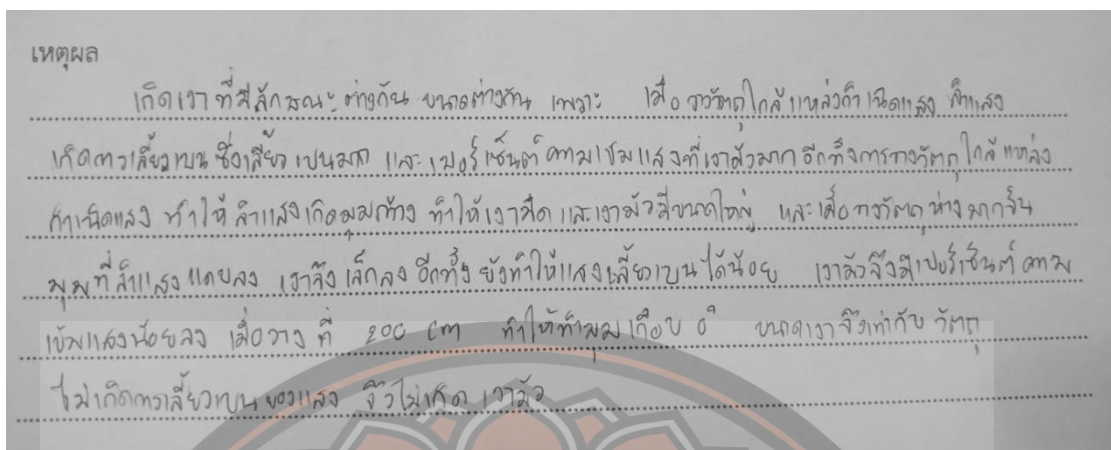 เหตุผล
เกิดเงาที่มีลักษณะต่างกัน ขนาดต่างกัน เพราะ เมื่อวางวัตถุใกล้แหล่งกำเนิดแสง ลำแสง
เกิดการเลี้ยวเบน ซึ่งเลี้ยวเบนมาก และเปอร์เซ็นต์ความเข้มแสงที่เงามัวมาก อีกทั้งการวางวัตถุใกล้แหล่ง
กำเนิดแสง ทำให้ลำแสงเกิดมุมกว้าง ทำให้เงามืด และเงามัวมีขนาดใหญ่ และเมื่อวางวัตถุห่างมากขึ้น
มุมที่ลำแสงแคบลง เงาจึงเล็กลง อีกทั้ง ยังทำให้แสงเลี้ยวเบนได้น้อย เงามัวจึงมีเปอร์เซ็นต์ความ
เข้มแสงน้อยลง เมื่อวาง ที่ 200 cm ทำให้ทำมุมเกือบ 0° ขนาดเงาจึงเท่ากับ วัตถุ
ไม่เกิดการเลี้ยวเบนของแสง จึงไม่เกิด เงามัว